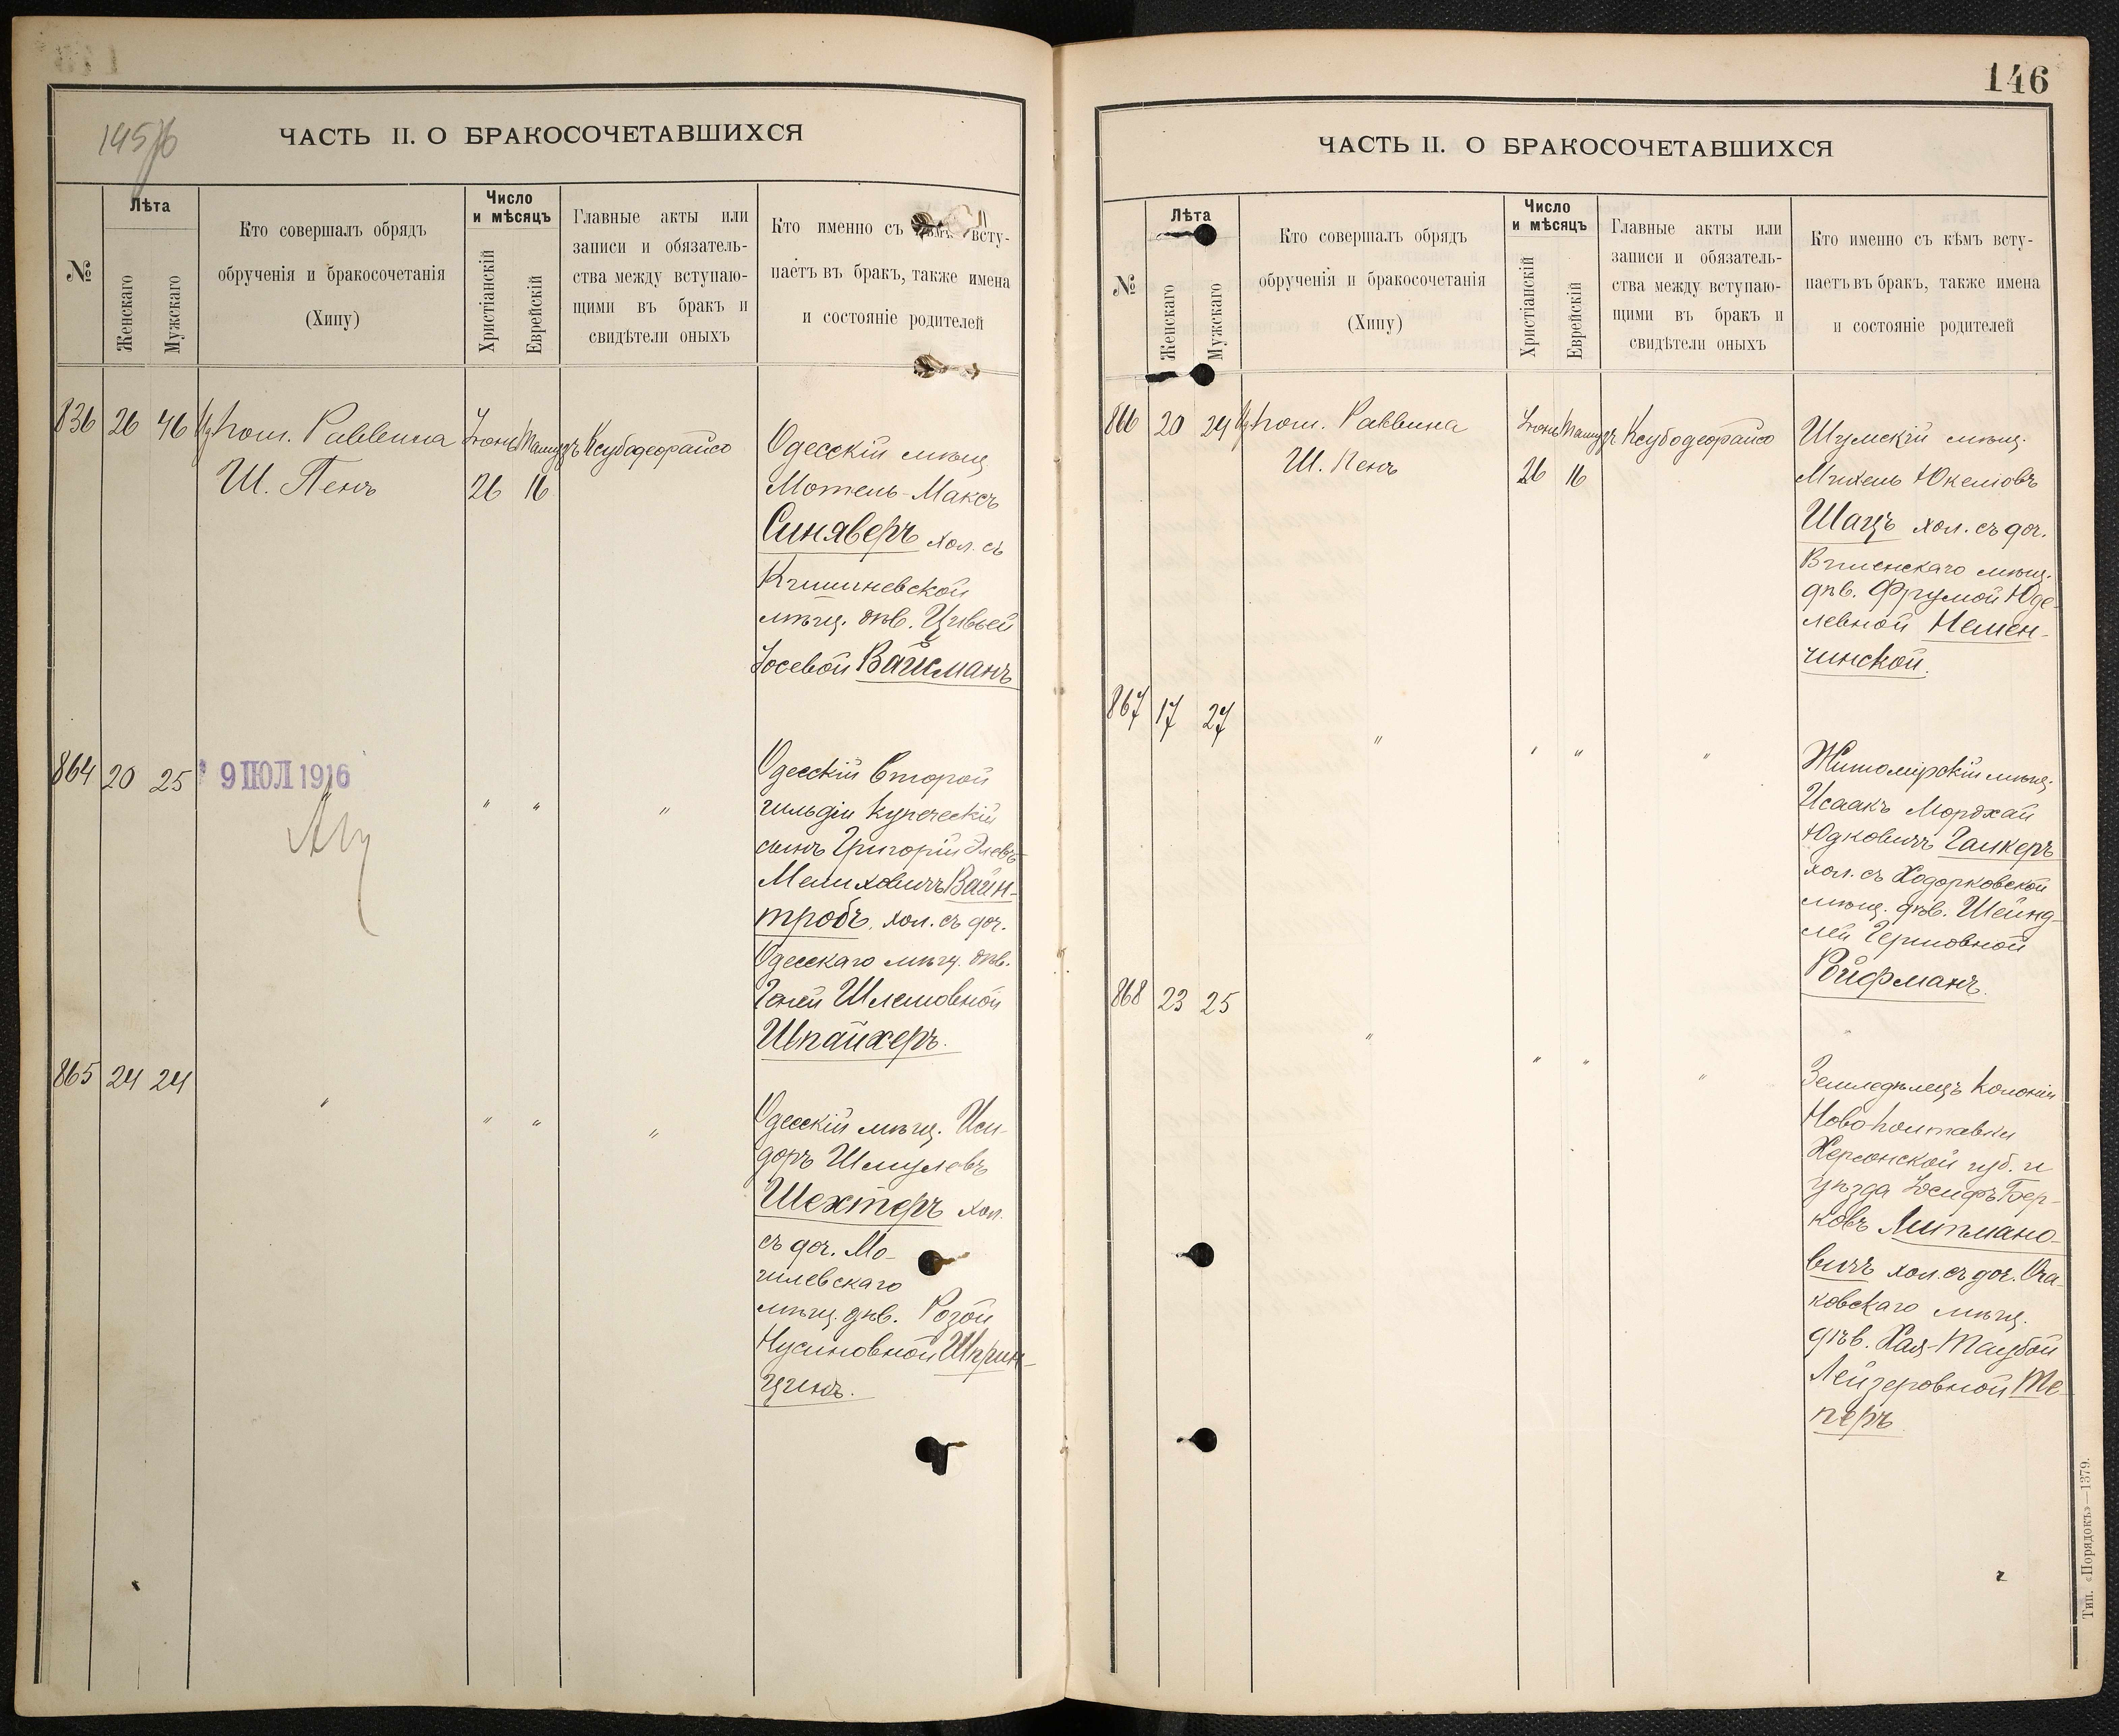 145/б
ЧАСТЬ II. О БРАКОСОЧЕТАВШИХСЯ
№
Лѣта
Женскаго
Мужскаго
Кто совершалъ обрядъ
обрученія и бракосочетанія
(Хипу)
Число
и мѣсяцъ
Христіанскій
Еврейскій
Главные акты или
записи и обязатель-
ства между вступаю-
щими въ бракъ и
свидѣтели оныхъ
Кто именно съ кѣмъ всту-
паетъ въ бракъ, также имена
и состояніе родителей
836 26 46 Пом. Раввина Іюнь Тамузъ Ксубодеорайсо
Ш. Пенъ 26 16
Одесскій мѣщ.
Мотель-Максъ
Синяверъ хол. съ
Кишиневской
мѣщ. дѣв. Цивьей
Іосевой Вайсманъ
864 20 25 9 ІЮЛ 1916 " " "
Одесскій второй
гильдіи купеческій
сынъ Григорій
Мелиховичъ Вайн-
тробъ, хол. съ доч.
Одесскаго мѣщ. дѣв.
Геней Шлемовной
Шпайхеръ.
865 24 24 " " " "
Одесскій мѣщ. Иси-
доръ Шмулевъ
Шехтеръ хол.
съ доч. Мо-
гилевскаго
мѣщ. дѣв. Розой
Нусиновной Шприн-
цинъ.
146
ЧАСТЬ II. О БРАКОСОЧЕТАВШИХСЯ
№
Лѣта
Женскаго
Мужскаго
Кто совершалъ обрядъ
обрученія и бракосочетанія
(Хипу)
Число
и мѣсяцъ
Христіанскій
Еврейскій
Главные акты или
записи и обязатель-
ства между вступаю-
щими въ бракъ и
свидѣтели оныхъ
Кто именно съ кѣмъ всту-
паетъ въ бракъ, также имена
и состояніе родителей
866 20 24 Пом. Раввина Іюнь Тамузъ Ксубодеорайсо
Ш. Пенъ 26 16
Шумскій мѣщ.
Михель Юкелювъ
Шацъ хол. съ доч.
Виленскаго мѣщ.
дѣв. Фрумой Юде-
левной Немен-
чинской.
867 17 27 " " " "
Житомірскій мѣщ.
Исаакъ Мордхай
Юдковичъ Галкеръ
хол. съ Ходорковской
мѣщ. дѣв. Шейнд-
лей Гершовной
Ройфманъ.
868 23 25 " " " "
Земледѣлецъ колоніи
Ново-Полтавки
Херсонской губ. и
уѣзда Іосифъ Бер-
ковъ Липмано-
вичъ хол. съ доч. Оча-
ковскаго мѣщ.
дѣв. Хая-Таубой
Лейзеровной Те-
перъ
Тип. «Порядокъ»—1379.